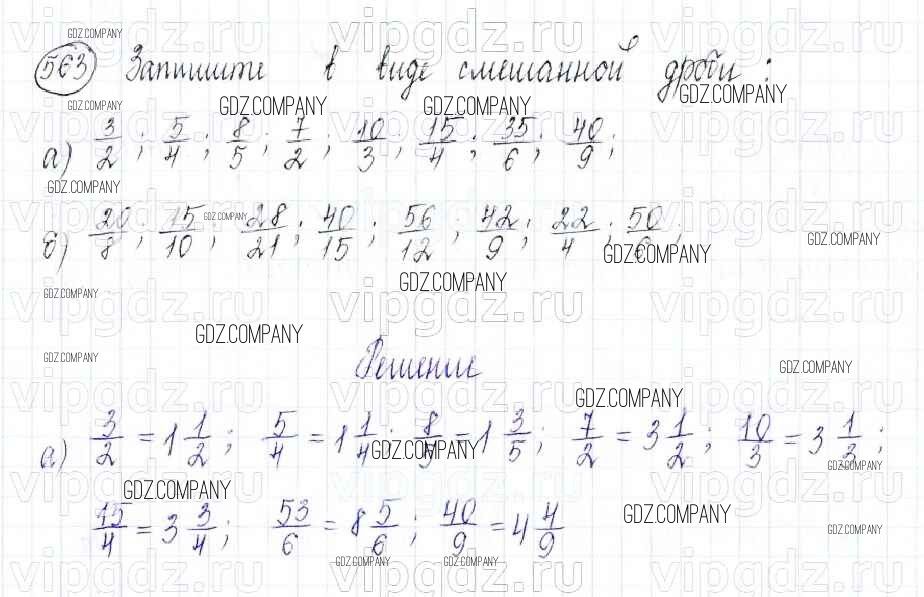 563 Запишите в виде смешанной дроби:
а) 3/2; 5/4; 8/5; 7/2; 10/3; 15/4; 35/6; 40/9;
б) 20/8; 15/10; 28/21; 40/15; 56/12; 42/9; 22/4; 50/6;
Решение
а) 3/2 = 1 1/2; 5/4 = 1 1/4; 8/5 = 1 3/5; 7/2 = 3 1/2; 10/3 = 3 1/3;
15/4 = 3 3/4; 53/6 = 8 5/6; 40/9 = 4 4/9
GDZ.COMPANY
vipgdz.ru